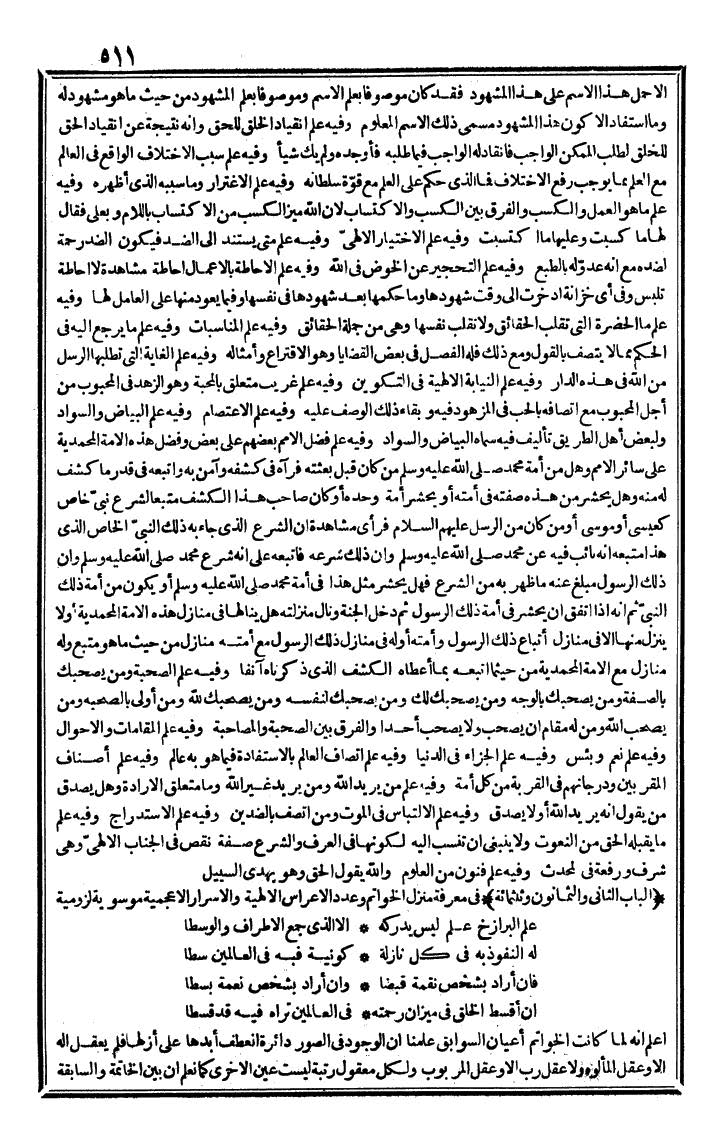 ٥١١
الاحمل هذا الاسم على هذا المشهود فقد كان موصوفا بعلم الاسم وموصوفا بعلم المشهود من حيث ما هو مشهود له
وما استفاد الا كون هذا المشهود مسمى ذلك الاسم المعلوم وفيه علم انقياد الخلق للحق وانه نتيجة عن انقياد الحق
للخلق لطلب الممكن الواجب فانقاد له الواجب فيما طلبه فأوجده ولم يك شيأ وفيه علم سبب الاختلاف الواقع فى العالم
مع العلم بما يوجب رفع الاختلاف فما الذى حكم على العلم مع قوّة سلطانه وفيه علم الاغترار وما سببه الذى أظهره وفيه
علم ما هو العمل والكسب والفرق بين الكسب والاكتساب لان الله ميز الكسب من الاكتساب باللام وبعلى فقال
لها ما كسبت وعليها ما اكتسبت وفيه علم الاختيار الالهىّ وفيه علم متى يستند الى الضد فيكون الضد رحمة
لضده مع انه عدوّ له بالطبع وفيه علم التحجير عن الخوض فى الله وفيه علم الاحاطة بالاعمال احاطة مشاهدة لا احاطة
تلبس وفى أى خزانة ادخرت الى وقت شهودها وما حكمها بعد شهودها فى نفسها وفيما يعود منها على العامل لها وفيه
علم ما الحضرة التى تقلب الحقائق ولا تقلب نفسها وهى من جملة الحقائق وفيه علم المناسبات وفيه علم ما يرجع اليه فى
الحكم مما لا يتصف بالقول ومع ذلك فله الفصل فى بعض القضايا وهو الاقتراع وأمثاله وفيه علم الغاية التى تطلبها الرسل
من الله فى هذه الدار وفيه علم النيابة الالهية فى التكوين وفيه علم غريب متعلق بالمحبة وهو الزهد فى المحبوب من
أجل المحبوب مع اتصافه بالحب فى المزهود فيه و بقاء ذلك الوصف عليه وفيه علم الاعتصام وفيه علم البياض والسواد
ولبعض أهل الطريق تأليف فيه سماه البياض والسواد وفيه علم فضل الامم بعضهم على بعض وفضل هذه الامة المحمدية
على سائر الامم وهل من أمة محمد صلى الله عليه وسلم من كان قبل بعثته فرآه فى كشفه وآمن به واتبعه فى قدر ما كشف
له منه وهل يحشر من هذه صفته فى أمته أو يحشر أمة وحده أو كان صاحب هذا الكشف متبعا لشرع نبىّ خاص
كعيسى أو موسى أو من كان من الرسل عليهم السلام فرأى مشاهدة ان الشرع الذى جاء به ذلك النبىّ الخاص الذى
هذا متبعه انه نائب فيه عن محمد صلى الله عليه وسلم وان ذلك شرعه فاتبعه على انه شرع محمد صلى الله عليه وسلم وان
ذلك الرسول مبلغ عنه ما ظهر به من الشرع فهل يحشر مثل هذا فى أمة محمد صلى الله عليه وسلم أو يكون من أمة ذلك
النبىّ ثم انه اذا اتفق ان يحشر فى أمة ذلك الرسول ثم دخل الجنة ونال منزلته هل ينالها فى منازل هذه الامة المحمدية أولا
ينزل منها الا فى منازل أتباع ذلك الرسول وأمته أوله فى منازل ذلك الرسول مع أمته منازل من حيث ما هو متبع وله
منازل مع الامة المحمدية من حيث ما اتبعه بما أعطاه الكشف الذى ذكرناه آنفا وفيه علم الصحبة ومن يصحبك
بالصفة ومن يصحبك بالوجه ومن يصحبك لك ومن يصحبك لنفسه ومن يصحبك لله ومن أولى بالصحبه ومن
يصحب الله ومن له مقام ان يصحب ولا يصحب أحدا والفرق بين الصحبة والمصاحبة وفيه علم المقامات والاحوال
وفيه علم نعم و بئس وفيه علم الجزاء فى الدنيا وفيه علم اتصاف العالم بالاستفادة فيما هو به عالم وفيه علم أصناف
المقربين ودرجاتهم فى القربة من كل أمة وفيه علم من يريد الله ومن يريد غير الله وما متعلق الارادة وهل يصدق
من يقول انه يريد الله أولا يصدق وفيه علم الالتباس فى الموت ومن اتصف بالضدين وفيه علم الاستدراج وفيه علم
ما يقبله الحق من النعوت ولا ينبغى ان تنسب اليه لكونها فى العرف والشرع صفة نقص فى الجناب الالهىّ وهى
شرف ورفعة فى المحدث وفيه علم فنون من العلوم والله يقول الحق وهو يهدى السبيل
﴿الباب الثانى والثمانون وثلثمائة﴾ فى معرفة منزل الخواتم وعدد الاعراس الالهية والاسرار الاعجمية موسوية لزومية
علم البرازخ علم ليس يدركه * الا الذى جمع الاطراف والوسطا
له النفوذ به فى كل نازلة * كونية فيه فى العالمين سطا
فان أراد بشخص نقمة قبضا * وان أراد بشخص نعمة بسطا
ان أقسط الخلق فى ميزان رحمته * فى العالمين تراه فيه قد قسطا
اعلم انه لما كانت الخواتم أعيان السوابق علمنا ان الوجود فى الصور دائرة انعطف أبدها على أزلها فلم يعقل اله
الا وعقل المألوه ولا عقل رب الا وعقل المربوب ولكل معقول رتبة ليست عين الاخرى كما نعلم ان بين الخاتمة والسابقة